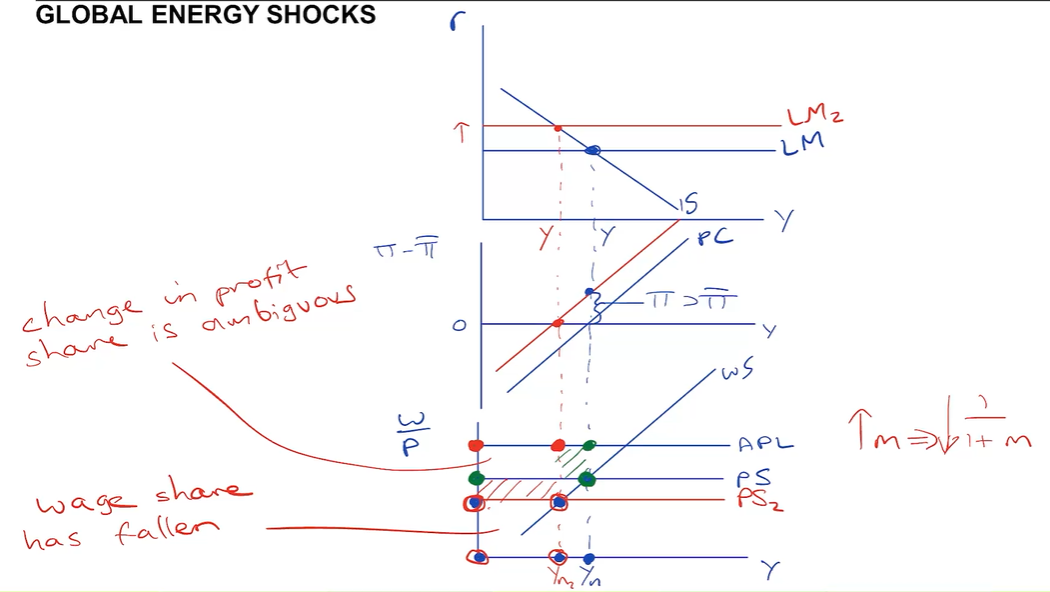 GLOBAL ENERGY SHOCKS
r
↑
LM₂
LM
IS
Y
Y
Y
π - π̅
PC
π > π̅
0
Y
change in profit
share is ambiguous
WS
W
P
APL
PS
PS₂
↑m ⇒ ↓ 1
1 + m
wage share
has fallen
Yn₂
Yn
Y